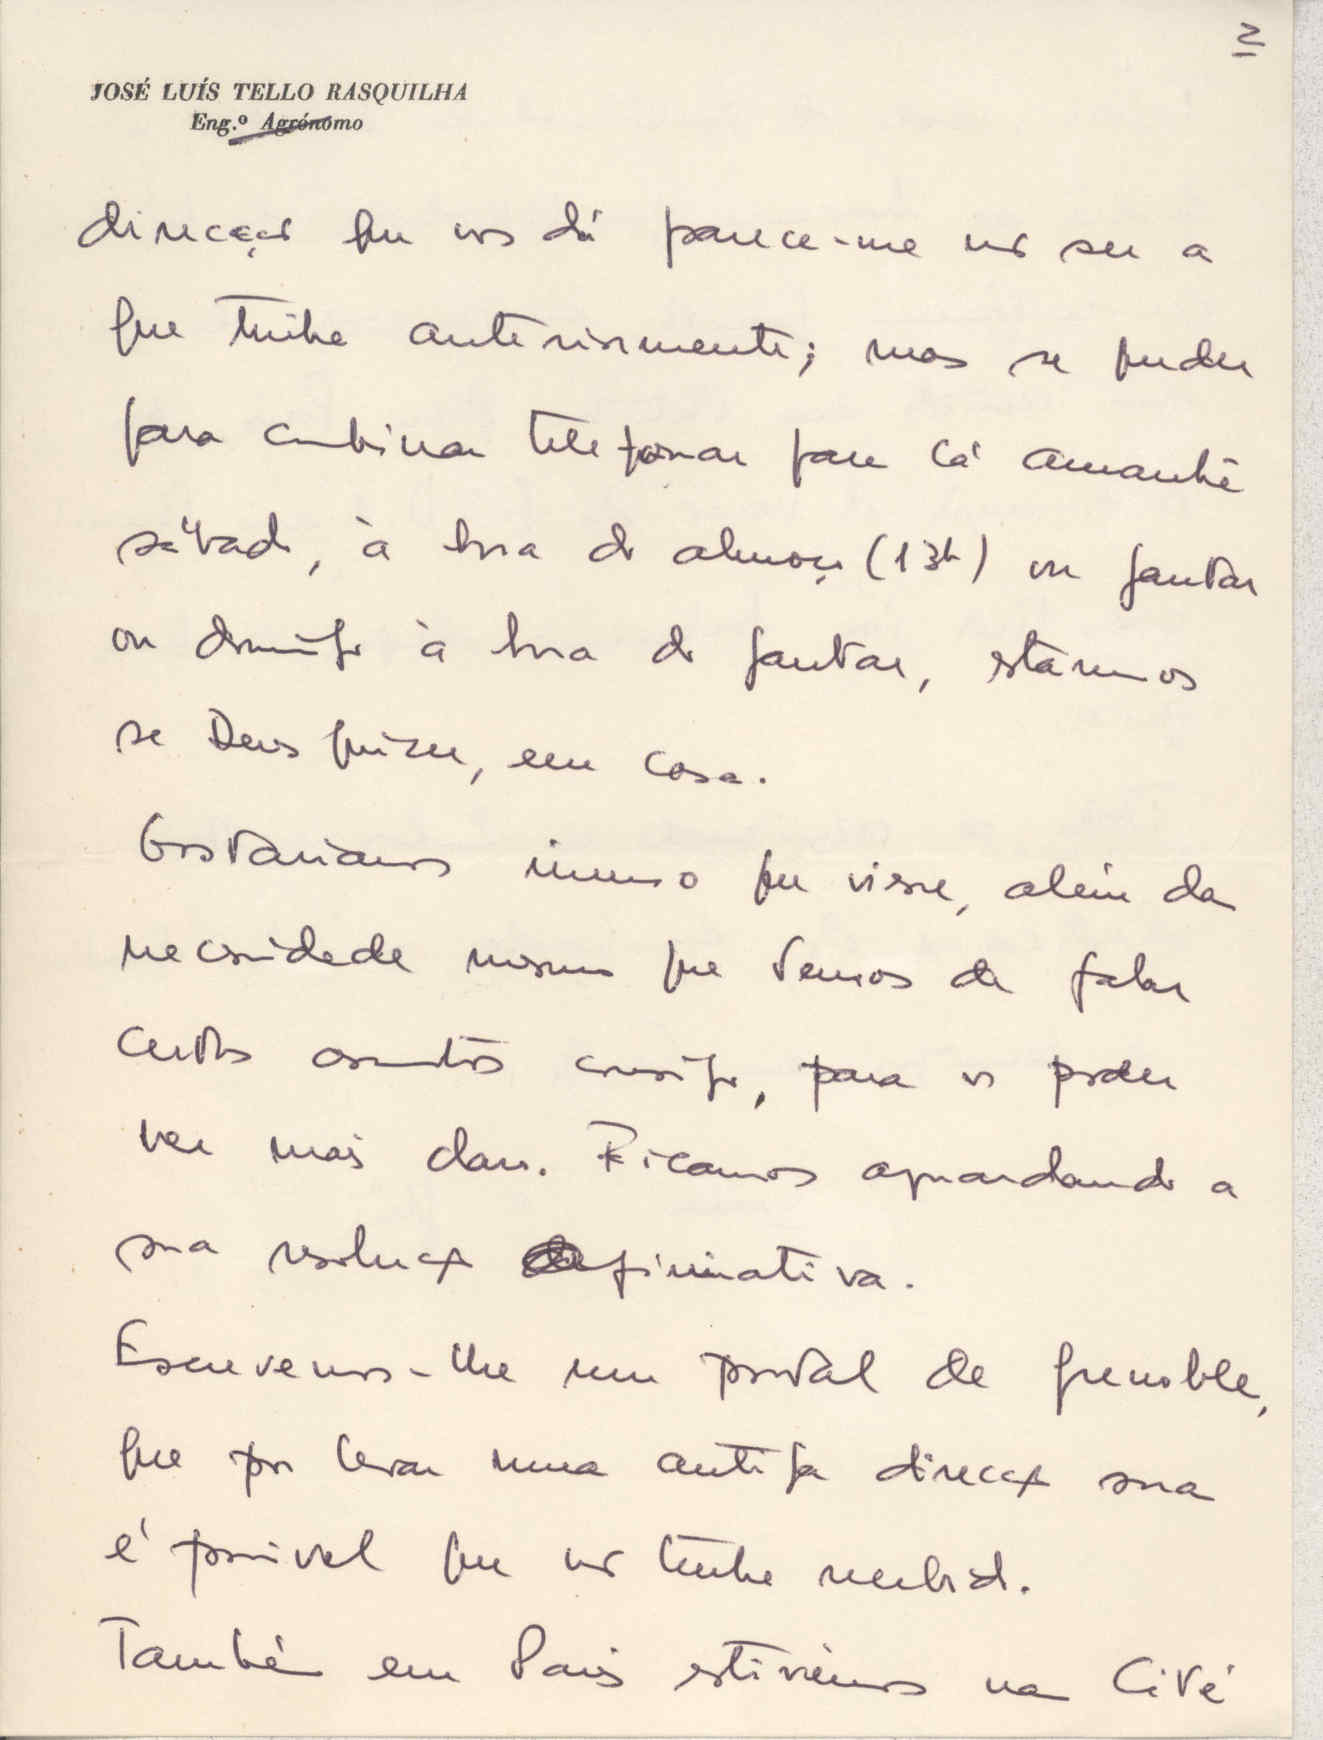 2
JOSÉ LUÍS TELLO RASQUILHA
Eng.º Agrónomo
direcção que nos dá parece-me não ser a
que tinha anteriormente; mas se puder
para combinar telefonar para cá amanhã
sábado, à hora do almoço (13h) ou jantar
ou domingo à hora do jantar, estaremos
se Deus quizer, em casa.
Gostariamos imenso que viesse, além da
necessidade mesmo que temos de falar
certos assuntos consigo, para os poder
ver mais claro. Ficamos aguardando a
sua resolução afirmativa.
Escrevemos-lhe um postal de Grenoble,
que por levar uma antiga direcção sua
é possivel que não tenha recebido.
Também em Paris estivémos na Cité